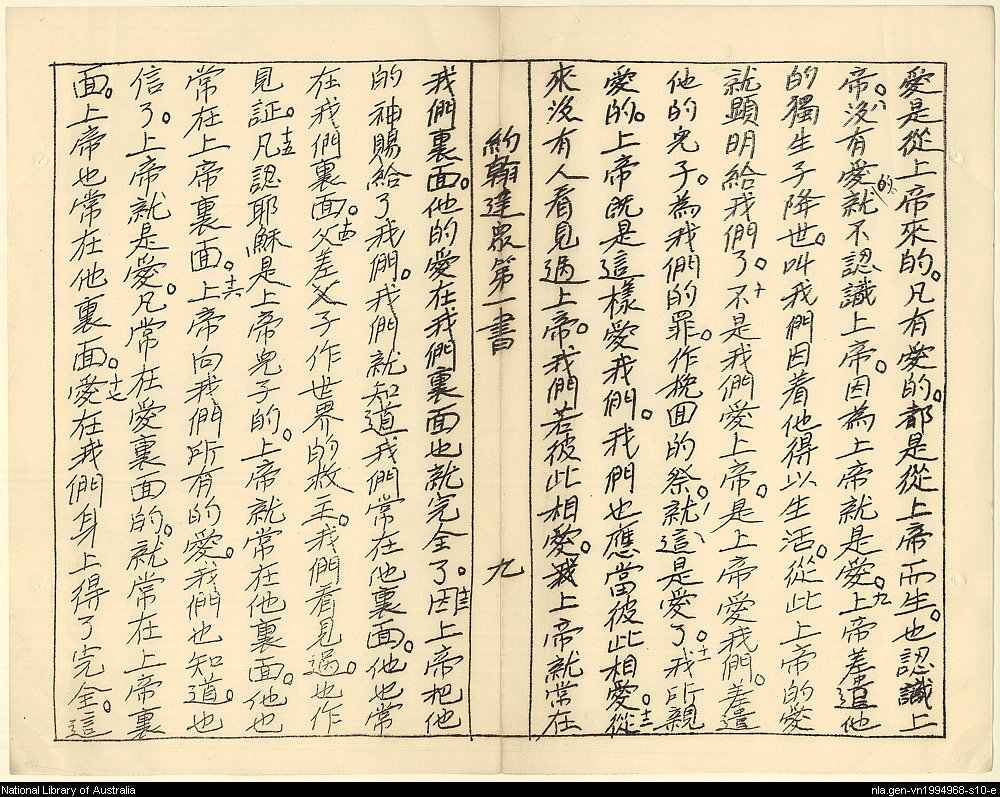 愛是從上帝來的。凡有愛的。都是從上帝而生。也認識上
帝。八沒有愛的就不認識上帝。因為上帝就是愛。九上帝差遣他
的獨生子降世。叫我們因着他得以生活。從此上帝的愛
就顯明給我們了。十不是我們愛上帝。是上帝愛我們。差遣
他的兒子。為我們的罪。作挽回的祭。就這是愛了。十一我所親
愛的。上帝既是這樣愛我們。我們也應當彼此相愛。十二從
來沒有人看見過上帝。我們若彼此相愛。上帝就常在
約翰達眾第一書 九
我們裏面。他的愛在我們裏面也就完全了。十三因上帝把他
的神賜給了我們。我們就知道我們常在他裏面。他也常
在我們裏面。十四父差父子作世界的救主。我們看見過。也作
見証。十五凡認耶穌是上帝兒子的。上帝就常在他裏面。他也
常在上帝裏面。十六上帝向我們所有的愛。我們也知道。也
信了。上帝就是愛。凡常在愛裏面的。就常在上帝裏
面。上帝也常在他裏面。十七愛在我們身上得了完全。這
National Library of Australia
nla.gen-vn1994968-s10-e